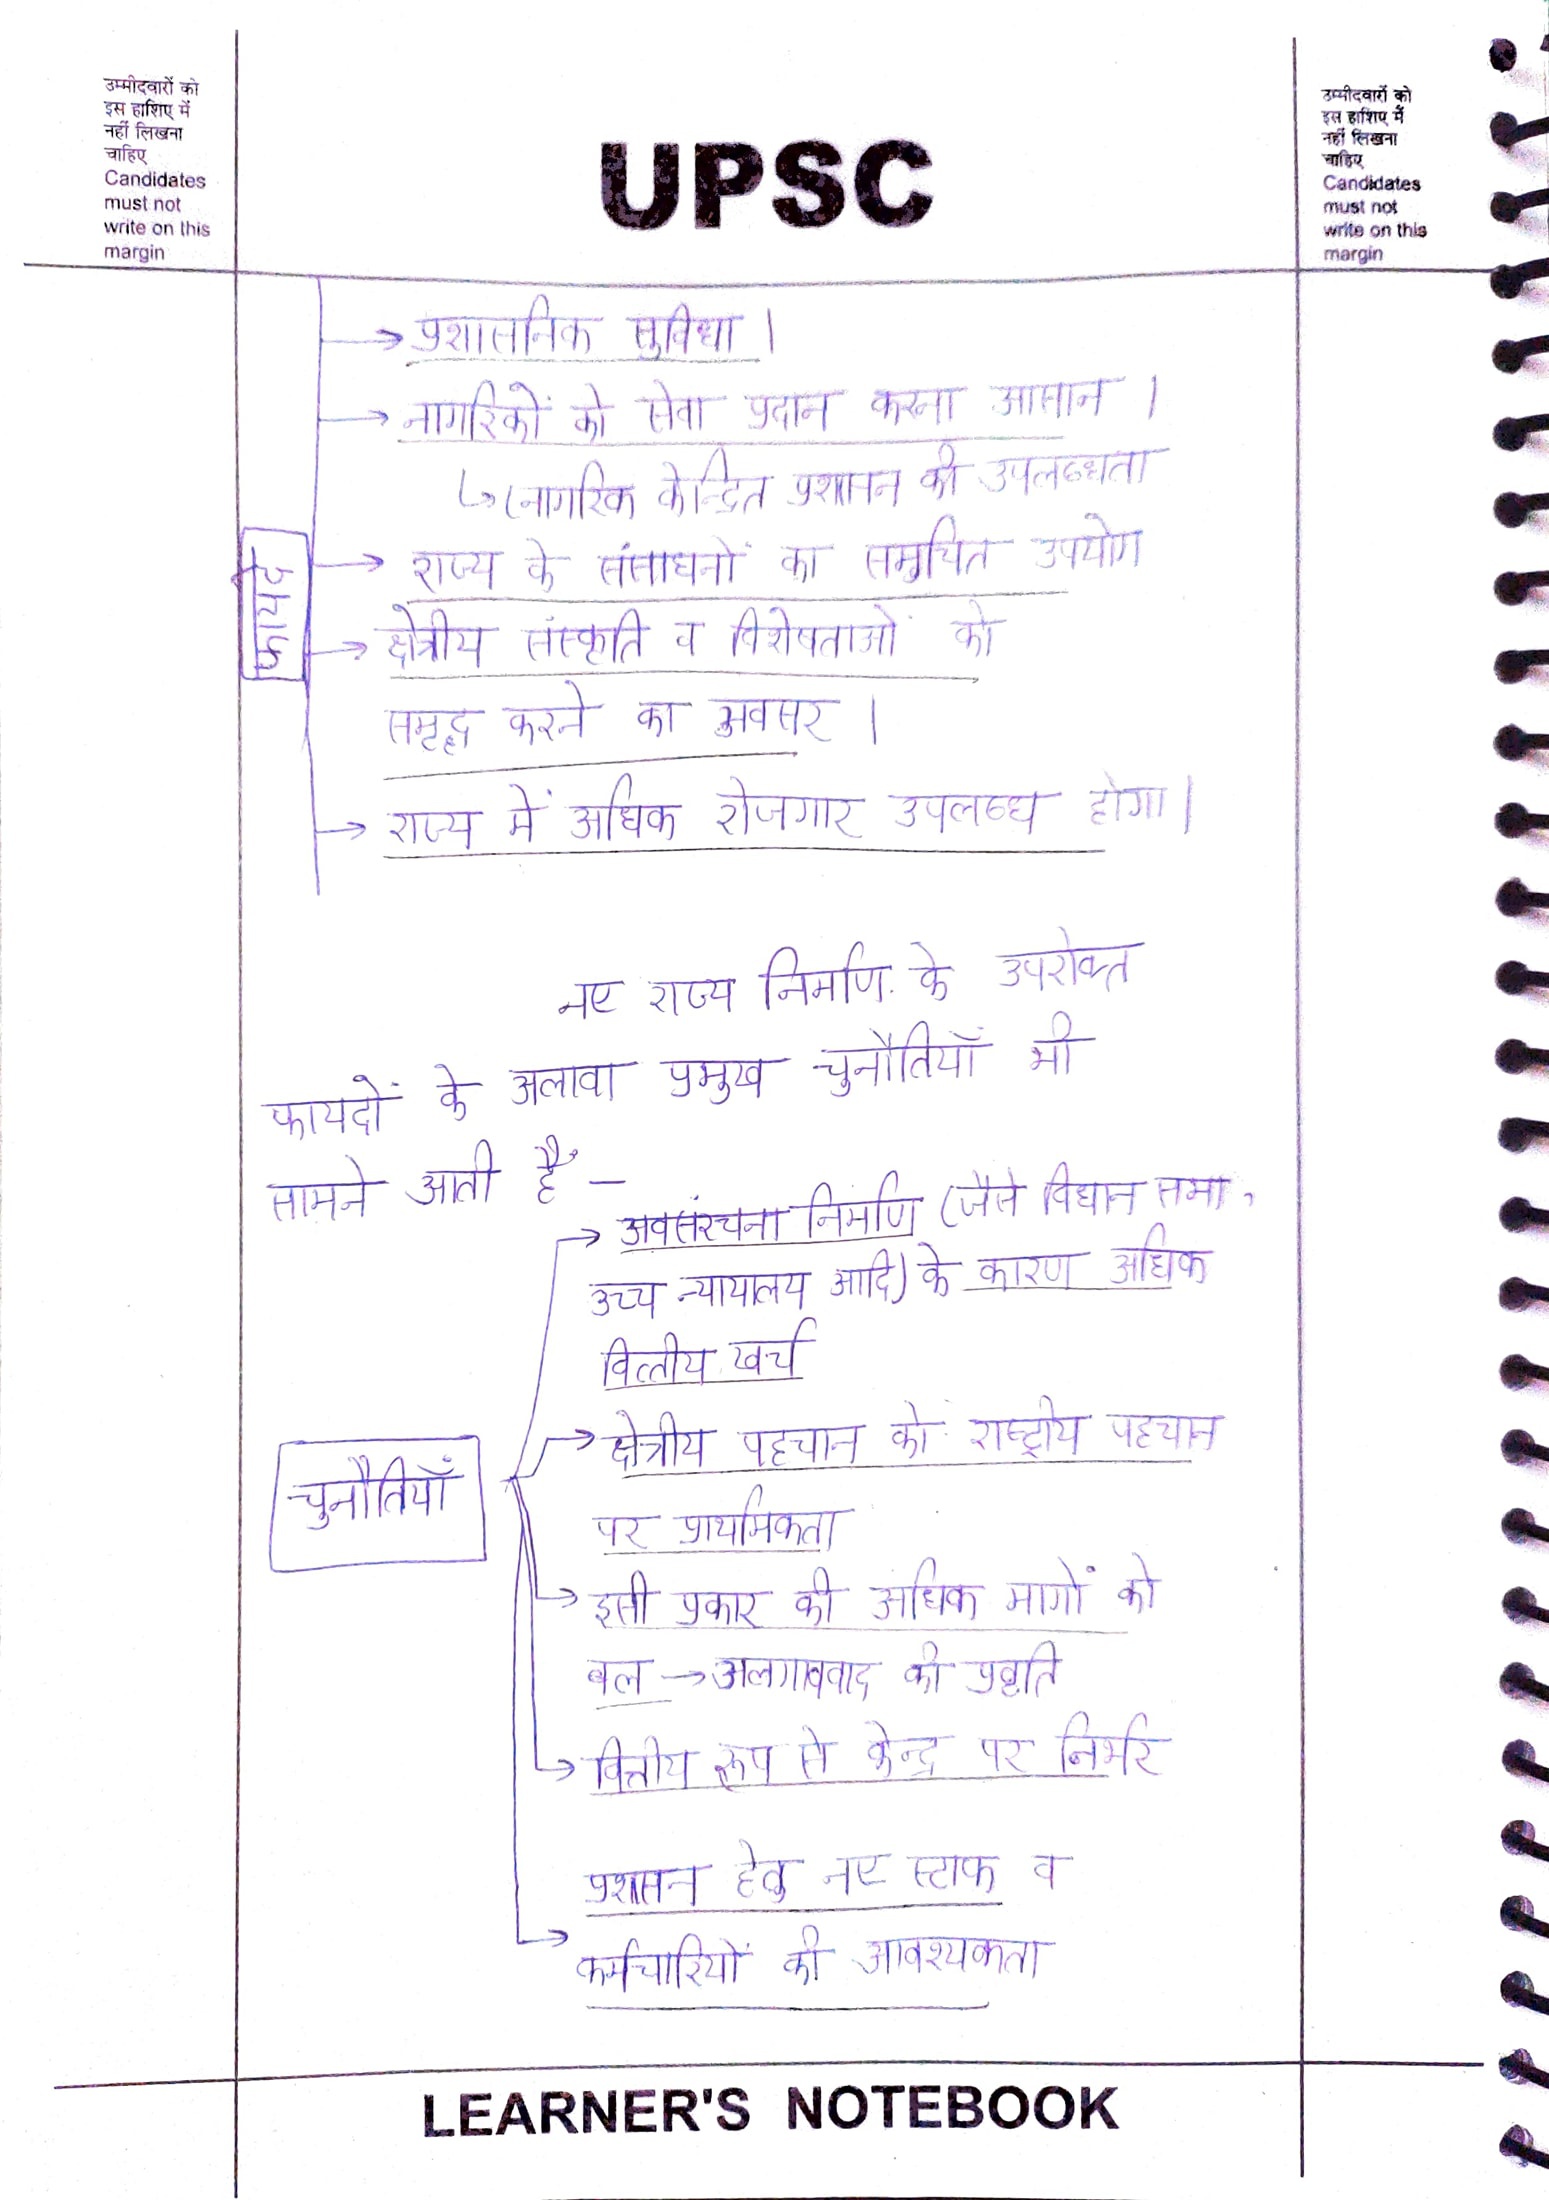 उम्मीदवारों को
इस हाशिए में
नहीं लिखना
चाहिए
Candidates
must not
write on this
margin
UPSC
उम्मीदवारों को
इस हाशिए में
नहीं लिखना
चाहिए
Candidates
must not
write on this
margin
फायदे
→ प्रशासनिक सुविधा ।
→ नागरिकों को सेवा प्रदान करना आसान ।
↳ (नागरिक केन्द्रित प्रशासन की उपलब्धता
→ राज्य के संसाधनों का समुचित उपयोग
→ क्षेत्रीय संस्कृति व विशेषताओं को
समृद्ध करने का अवसर ।
→ राज्य में अधिक रोजगार उपलब्ध होगा।
नए राज्य निर्माण के उपरोक्त
फायदों के अलावा प्रमुख चुनौतियाँ भी
सामने आती हैं –
चुनौतियाँ
→ अवसंरचना निर्माण (जैसे विधान सभा,
उच्च न्यायालय आदि) के कारण अधिक
वित्तीय खर्च
→ क्षेत्रीय पहचान को राष्ट्रीय पहचान
पर प्राथमिकता
→ इसी प्रकार की अधिक मागों को
बल → अलगाववाद की प्रवृति
→ वित्तीय रूप से केन्द्र पर निर्भर
प्रशासन हेतु नए स्टाफ व
→ कर्मचारियों की आवश्यकता
LEARNER'S NOTEBOOK